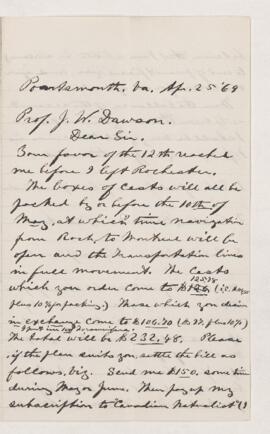 Portsmouth, Va. Apr. 25 '69
Prof. J. W. Dawson.
Dear Sir.
Your favor of the 12th reached
me before I left Rochester.
The boxes of casts will all be
packed by or before the 10th of
May, at which time navigation
from Roch. to Montreal will be
open and the Transportation lines
in full movement. The casts
which you order come to $
plus 10% for packing.) Those which you desire
in exchange come to $106.70 (plus 10%)
The total will be $232.48. Please
if the plan suits you, settle the bill as
follows, viz. Send me $150. some time
during May or June. Then pay up my
subscription to Canadian Naturalist (